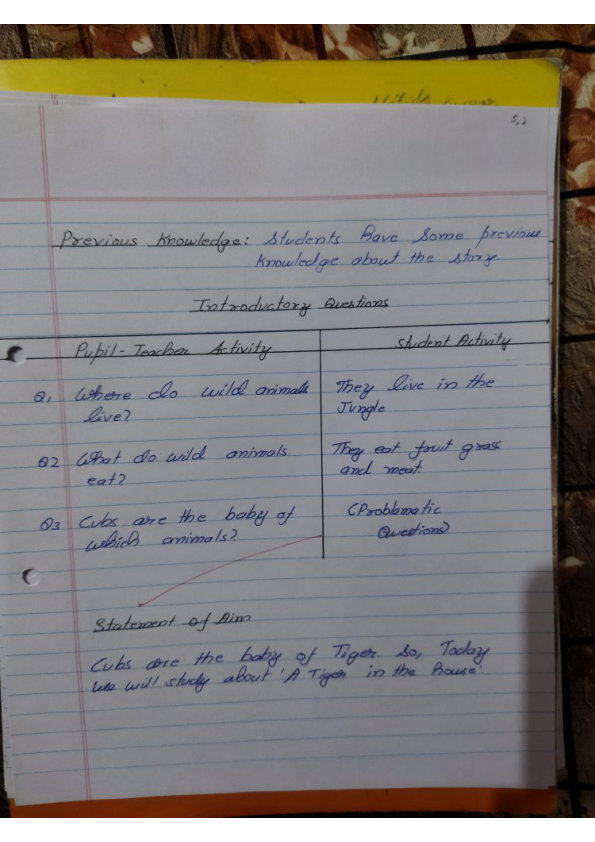 5,2
Previous Knowledge: Students have some previous
knowledge about the story
Introductory Questions
Pupil-Teacher Activity
Student Activity
Q1 Where do wild animals
live?
They live in the
Jungle
Q2 What do wild animals
eat?
They eat fruit grass
and meat.
Q3 Cubs are the baby of
which animals?
(Problamatic
Questions)
Statement of Aim
Cubs are the baby of Tiger. So, Today
we will study about 'A Tiger in the house'.